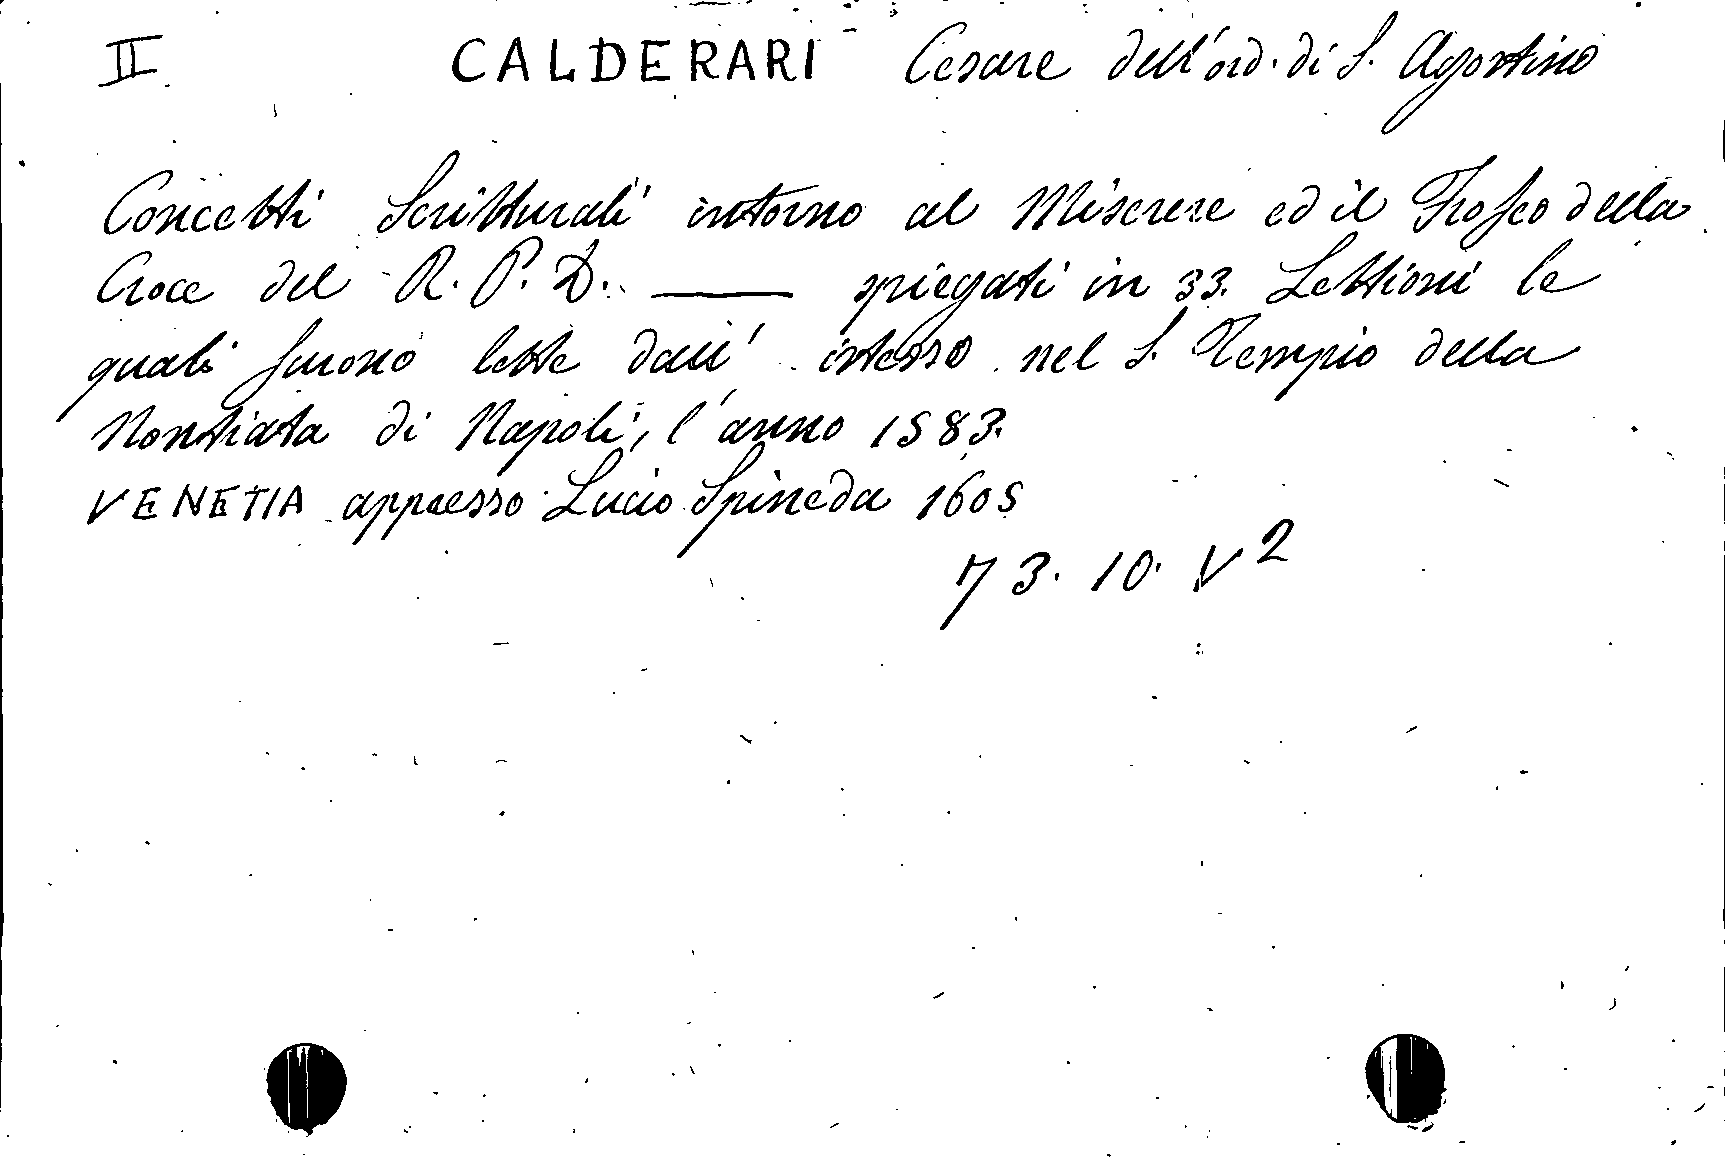 II CALDERARI Cesare dell'ord. di S. Agostino
Concetti Scritturali intorno al Miserere ed il Trofeo della
Croce del R. P. D. —— spiegati in 33. Lettioni le
quali furono lette dall' istesso nel S. Tempio della
Nontiata di Napoli, l'anno 1583.
VENETIA appresso Lucio Spineda 1605
73. 10. V²